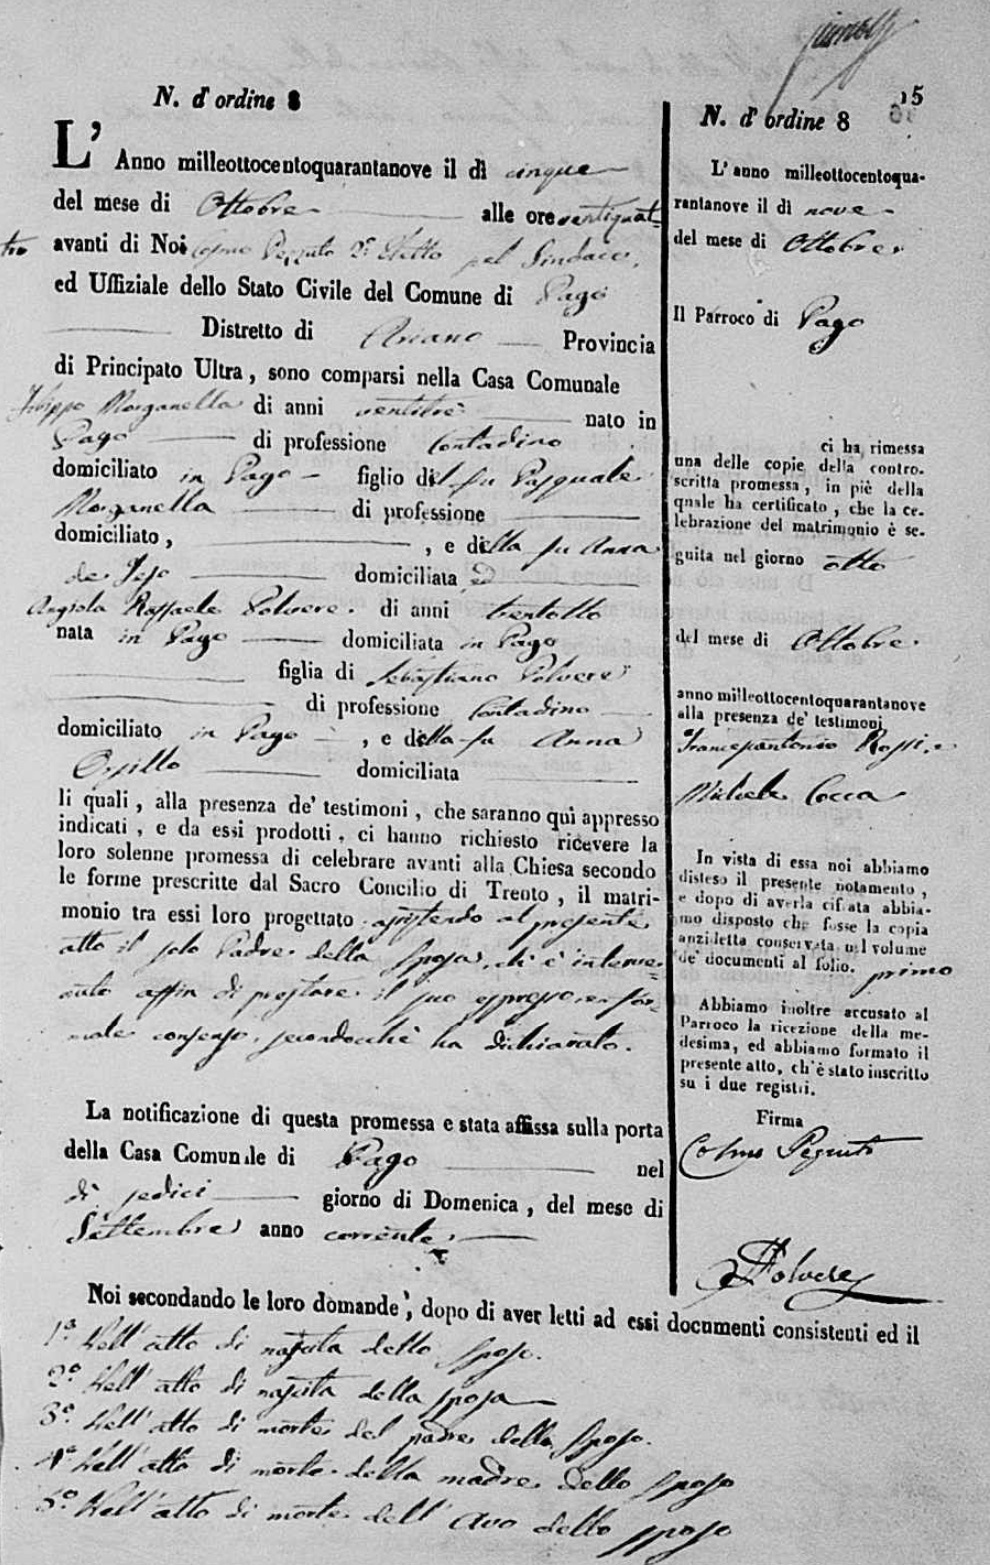 15
N. d'ordine 8
L'Anno milleottocentoquarantanove il dì cinque
del mese di Ottobre alle ore ventiquat-
tro avanti di Noi Cosmo Pezzuto 2° Eletto pel Sindaco,
ed Uffiziale dello Stato Civile del Comune di Pago
Distretto di Ariano Provincia
di Principato Ultra, sono comparsi nella Casa Comunale
Filippo Morganella di anni ventitrè nato in
Pago di professione Contadino
domiciliato in Pago figlio del fu Pasquale
Morganella di professione
domiciliato, , e della fu Anna
de Jeso domiciliata ed
Angiola Raffaele Polvere. di anni trentotto
nata in Pago domiciliata in Pago
figlia di Sebastiano Polvere
di professione Contadino
domiciliato in Pago , e della fu Anna
domiciliata
li quali, alla presenza de' testimoni, che saranno qui appresso
indicati, e da essi prodotti, ci hanno richiesto ricevere la
loro solenne promessa di celebrare avanti alla Chiesa secondo
le forme prescritte dal Sacro Concilio di Trento, il matri-
monio tra essi loro progettato assistendo al presente
atto il solo Padre della Sposa, ch'è interve-
nuto affin di prestare il suo espresso, e for-
male consenso, secondocchè ha dichiarato.
La notificazione di questa promessa e stata affissa sulla porta
della Casa Comunale di Pago nel
dì sedici giorno di Domenica, del mese di
Settembre anno corrente.
Noi secondando le loro domande, dopo di aver letti ad essi documenti consistenti ed il
1° Dell'atto di nascita dello sposo.
2° Dell'atto di nascita della sposa
3° Dell'atto di morte del padre dello sposo.
4° Dell'atto di morte della madre dello sposo
5° Dell'atto di morte dell'Avo dello sposo
N. d'ordine 8
L'anno milleottocentoqua-
rantanove il dì nove
del mese di Ottobre.
Il Parroco di Pago
ci ha rimessa
una delle copie della contro-
scritta promessa, in piè della
quale ha certificato, che la ce-
lebrazione del matrimonio è se-
guita nel giorno otto
del mese di Ottobre.
anno milleottocentoquarantanove
alla presenza de' testimoni
Francescantonio Rossi, e
Michele Cocca
In vista di essa noi abbiamo
disteso il presente notamento,
e dopo di averla cifrata abbia-
mo disposto che fosse la copia
anzidetta conservata nel volume
de' documenti al folio. primo
Abbiamo inoltre accusato al
Parroco la ricezione della me-
desima, ed abbiamo formato il
presente atto, ch'è stato inscritto
su i due registri.
Firma
Cosmo Pezzuto
Polvere